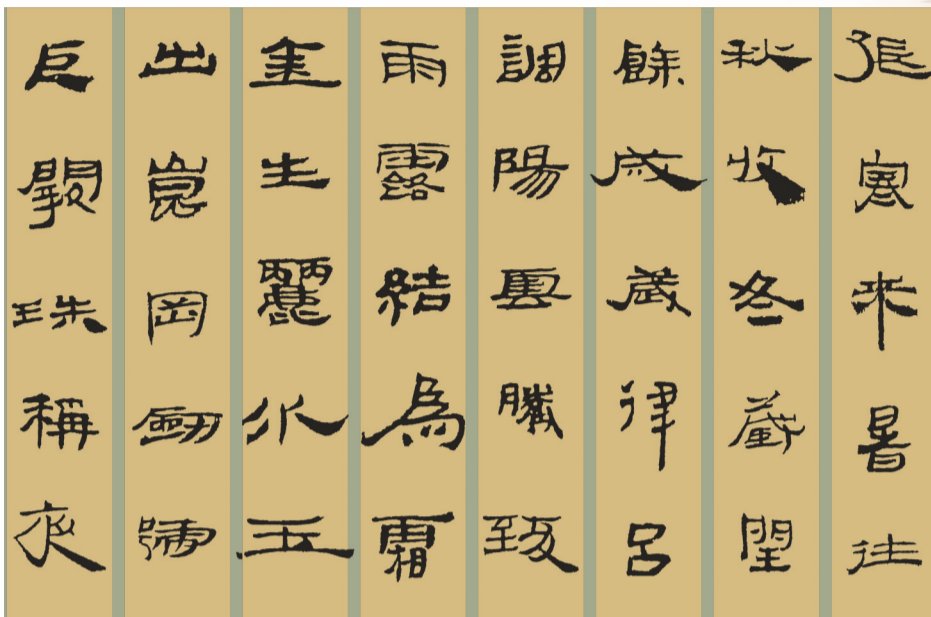 張寒来暑往
秋收冬藏閏
餘成歲律呂
調陽雲騰致
雨露結為霜
金生麗水玉
出崑岡劒號
巨闕珠稱夜